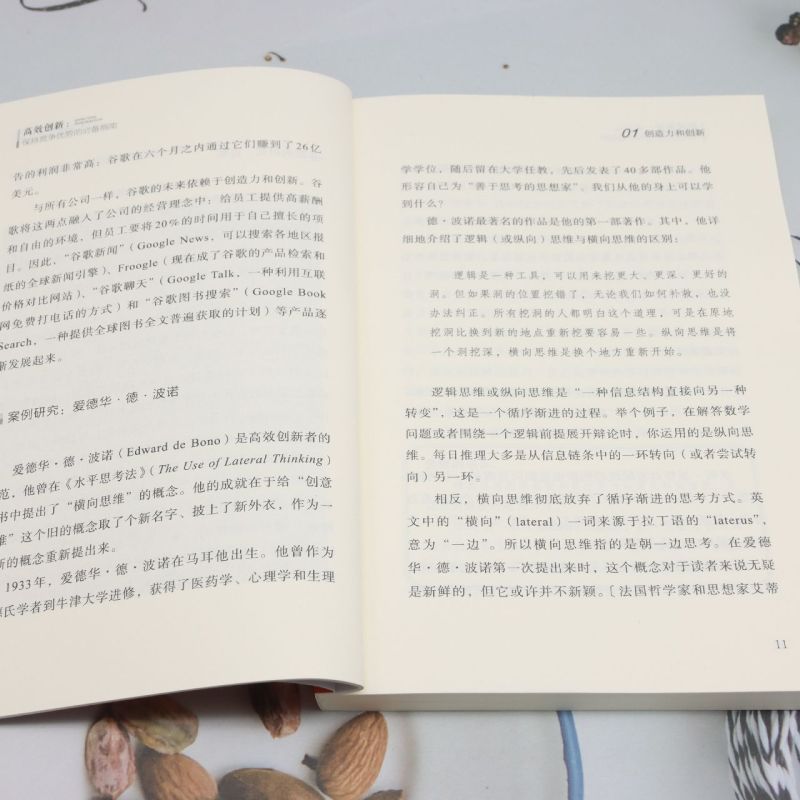 高效创新：
保持竞争优势的必备指南
告的利润非常高：谷歌在六个月之内通过它们赚到了26亿
美元。
与所有公司一样，谷歌的未来依赖于创造力和创新。谷
歌将这两点融入了公司的经营理念中：给员工提供高薪酬
和自由的环境，但员工要将20%的时间用于自己擅长的项
目。因此，“谷歌新闻”（Google News，可以搜索各地区报
纸的全球新闻引擎）、Froogle（现在成了谷歌的产品检索和
价格对比网站）、“谷歌聊天”（Google Talk，一种利用互联
网免费打电话的方式）和“谷歌图书搜索”（Google Book
Search，一种提供全球图书全文普遍获取的计划）等产品逐
渐发展起来。
案例研究：爱德华·德·波诺
爱德华·德·波诺（Edward de Bono）是高效创新者的
范，他曾在《水平思考法》（The Use of Lateral Thinking）
书中提出了“横向思维”的概念。他的成就在于给“创意
维”这个旧的概念取了个新名字、披上了新外衣，作为一
新的概念重新提出来。
1933年，爱德华·德·波诺在马耳他出生。他曾作为
德氏学者到牛津大学进修，获得了医药学、心理学和生理
01 创造力和创新
学学位，随后留在大学任教，先后发表了40多部作品。他
形容自己为“善于思考的思想家”。我们从他的身上可以学
到什么？
德·波诺最著名的作品是他的第一部著作。其中，他详
细地介绍了逻辑（或纵向）思维与横向思维的区别：
逻辑是一种工具，可以用来挖更大、更深、更好的
洞。但如果洞的位置挖错了，无论我们如何补救，也没
办法纠正。所有挖洞的人都明白这个道理，可是在原地
挖洞比换到新的地点重新挖要容易一些。纵向思维是将
一个洞挖深，横向思维是换个地方重新开始。
逻辑思维或纵向思维是“一种信息结构直接向另一种
转变”，这是一个循序渐进的过程。举个例子，在解答数学
问题或者围绕一个逻辑前提展开辩论时，你运用的是纵向思
维。每日推理大多是从信息链条中的一环转向（或者尝试转
向）另一环。
相反，横向思维彻底放弃了循序渐进的思考方式。英
文中的“横向”（lateral）一词来源于拉丁语的“laterus”，
意为“一边”。所以横向思维指的是朝一边思考。在爱德
华·德·波诺第一次提出来时，这个概念对于读者来说无疑
是新鲜的，但它或许并不新颖。〔法国哲学家和思想家艾蒂
11